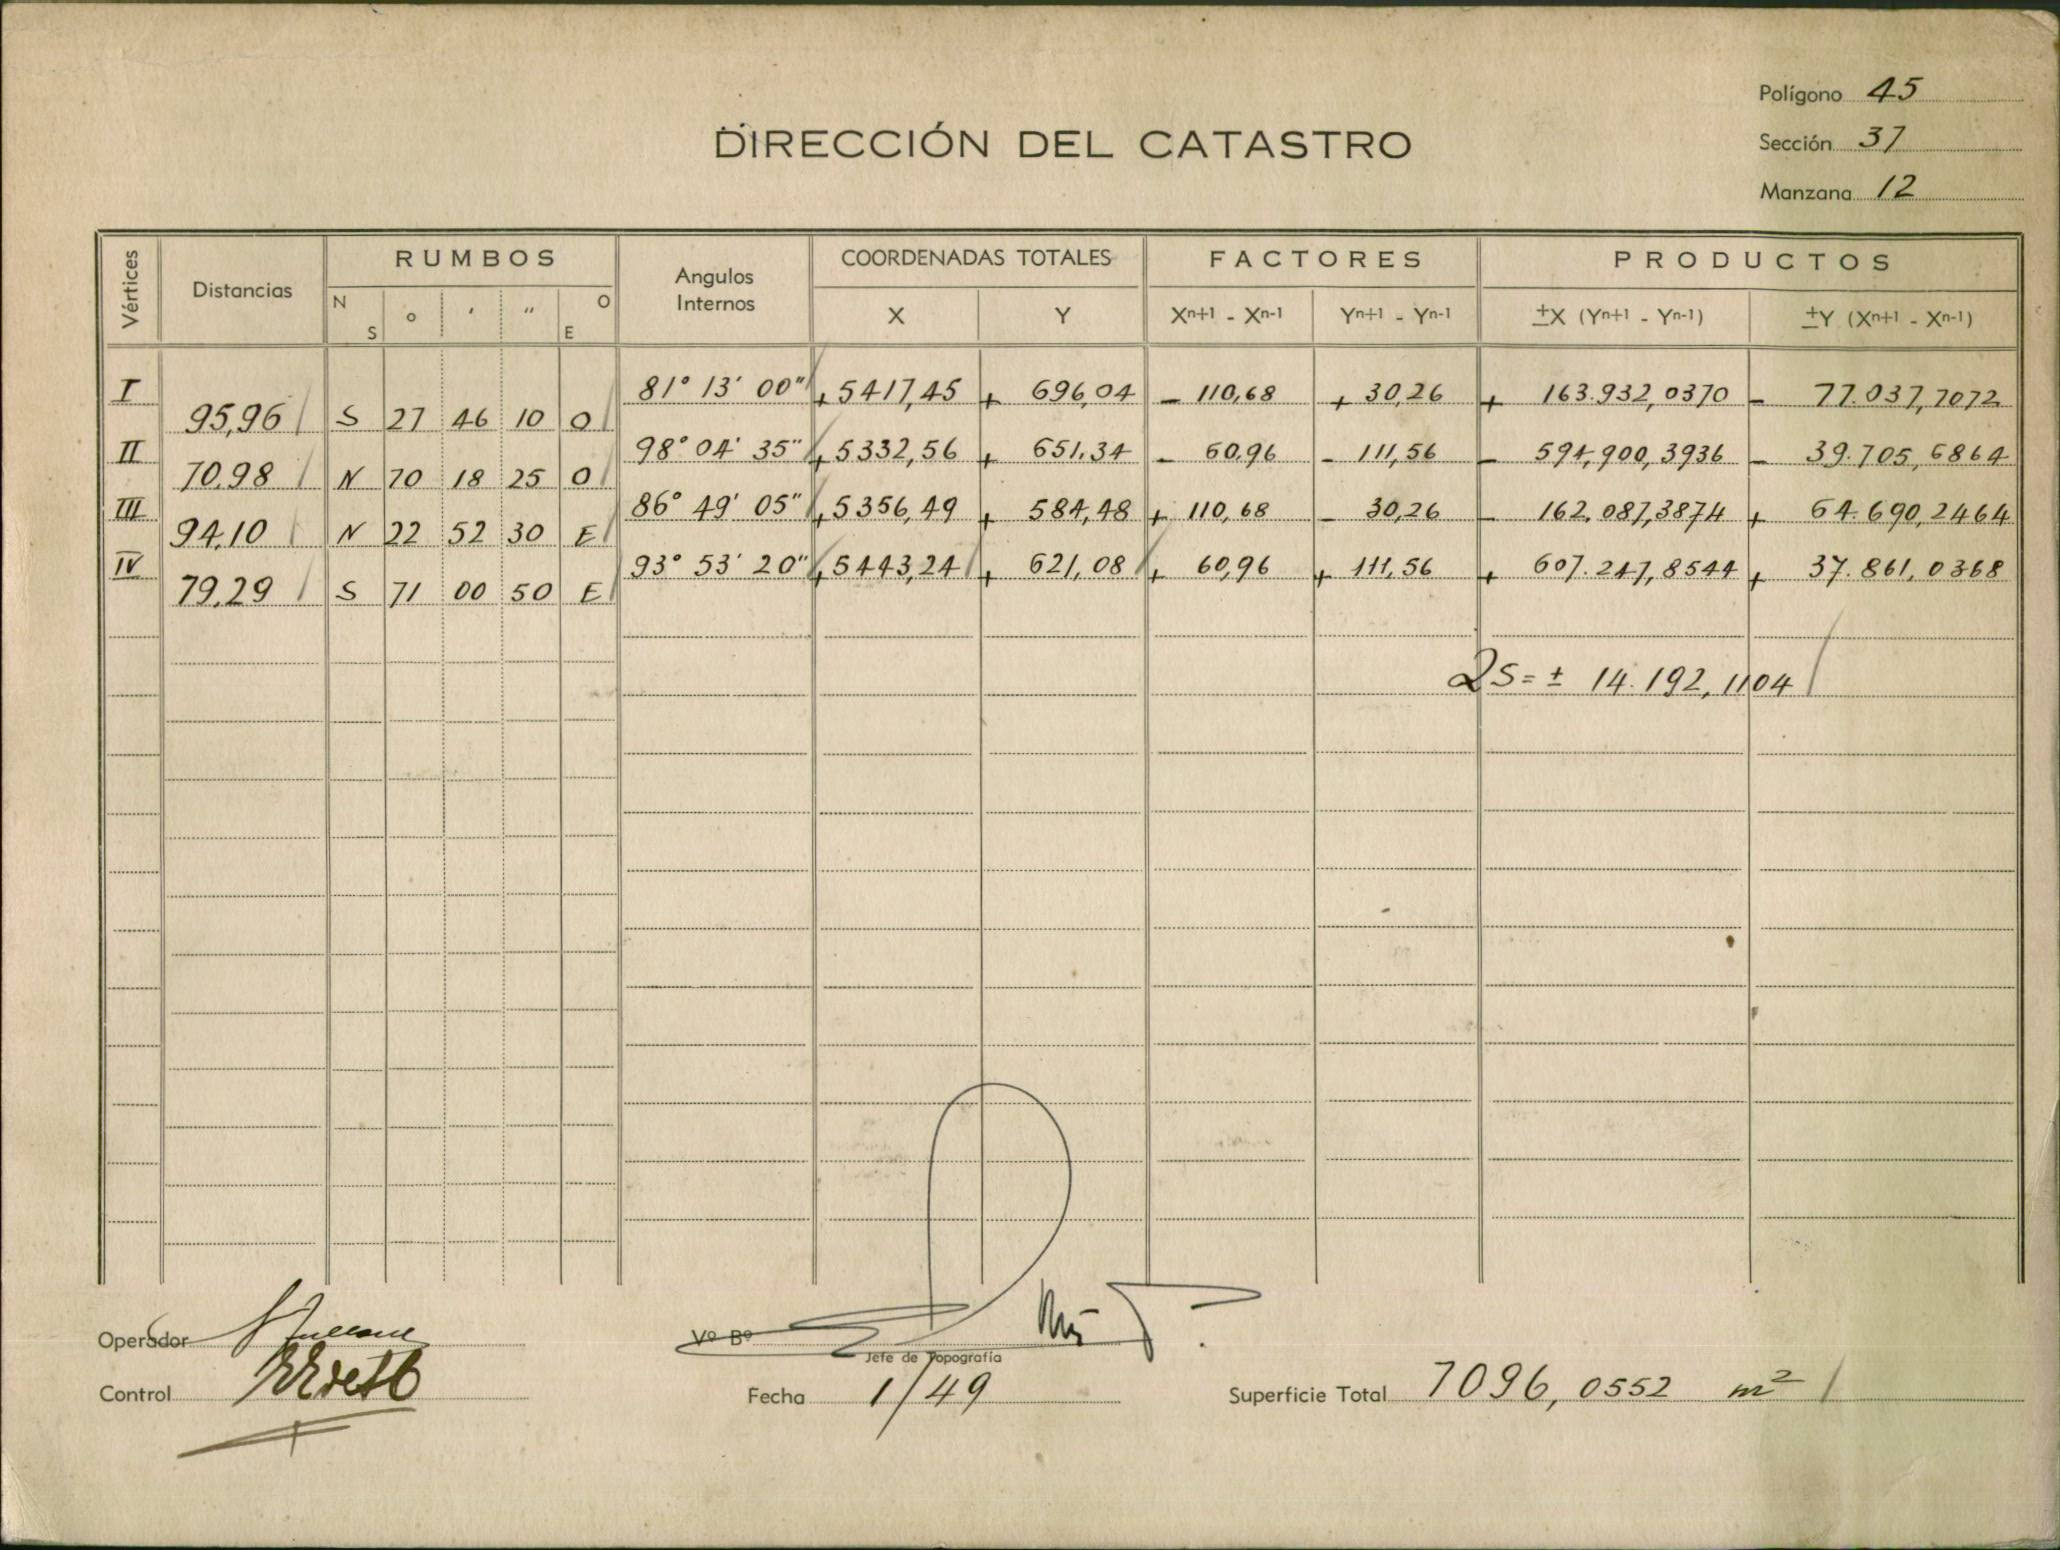 Polígono 45
DIRECCIÓN DEL CATASTRO
Sección 37
Manzana 12
Vértices Distancias RUMBOS Angulos Internos COORDENADAS TOTALES FACTORES PRODUCTOS
N S ° ' " O E X Y Xn+1 - Xn-1 Yn+1 - Yn-1 ±X (Yn+1 - Yn-1) ±Y (Xn+1 - Xn-1)
I 81° 13' 00" + 5417,45 + 696,04 - 110,68 + 30,26 + 163.932,0370 - 77.037,7072
95,96 S 27 46 10 O
II 98° 04' 35" + 5332,56 + 651,34 - 60,96 - 111,56 - 594,900,3936 - 39.705,6864
70,98 N 70 18 25 O
III 86° 49' 05" + 5356,49 + 584,48 + 110,68 - 30,26 - 162,087,3874 + 64.690,2464
94,10 N 22 52 30 E
IV 93° 53' 20" + 5443,24 + 621,08 + 60,96 + 111,56 + 607.247,8544 + 37.861,0368
79,29 S 71 00 50 E
2S = ± 14.192,1104
Operador
Vº Bº
Jefe de Topografía
Control
Fecha 1/49
Superficie Total 7096,0552 m²